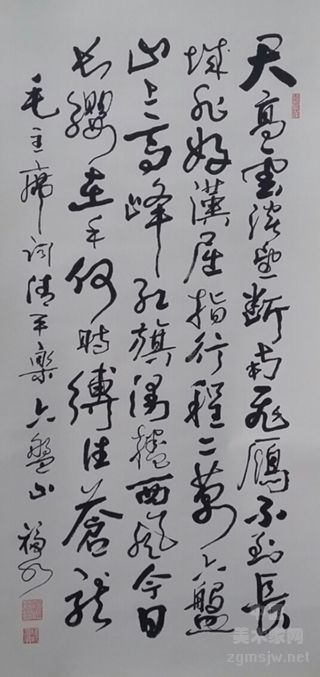 天高雲淡望斷南飛鴈不到長
城非好漢屈指行程二萬六盤
山上高峰紅旗漫捲西風今日
長纓在手何時縛住蒼龍
毛主席詞清平樂六盤山 福
美术家网
zgmsjw.net